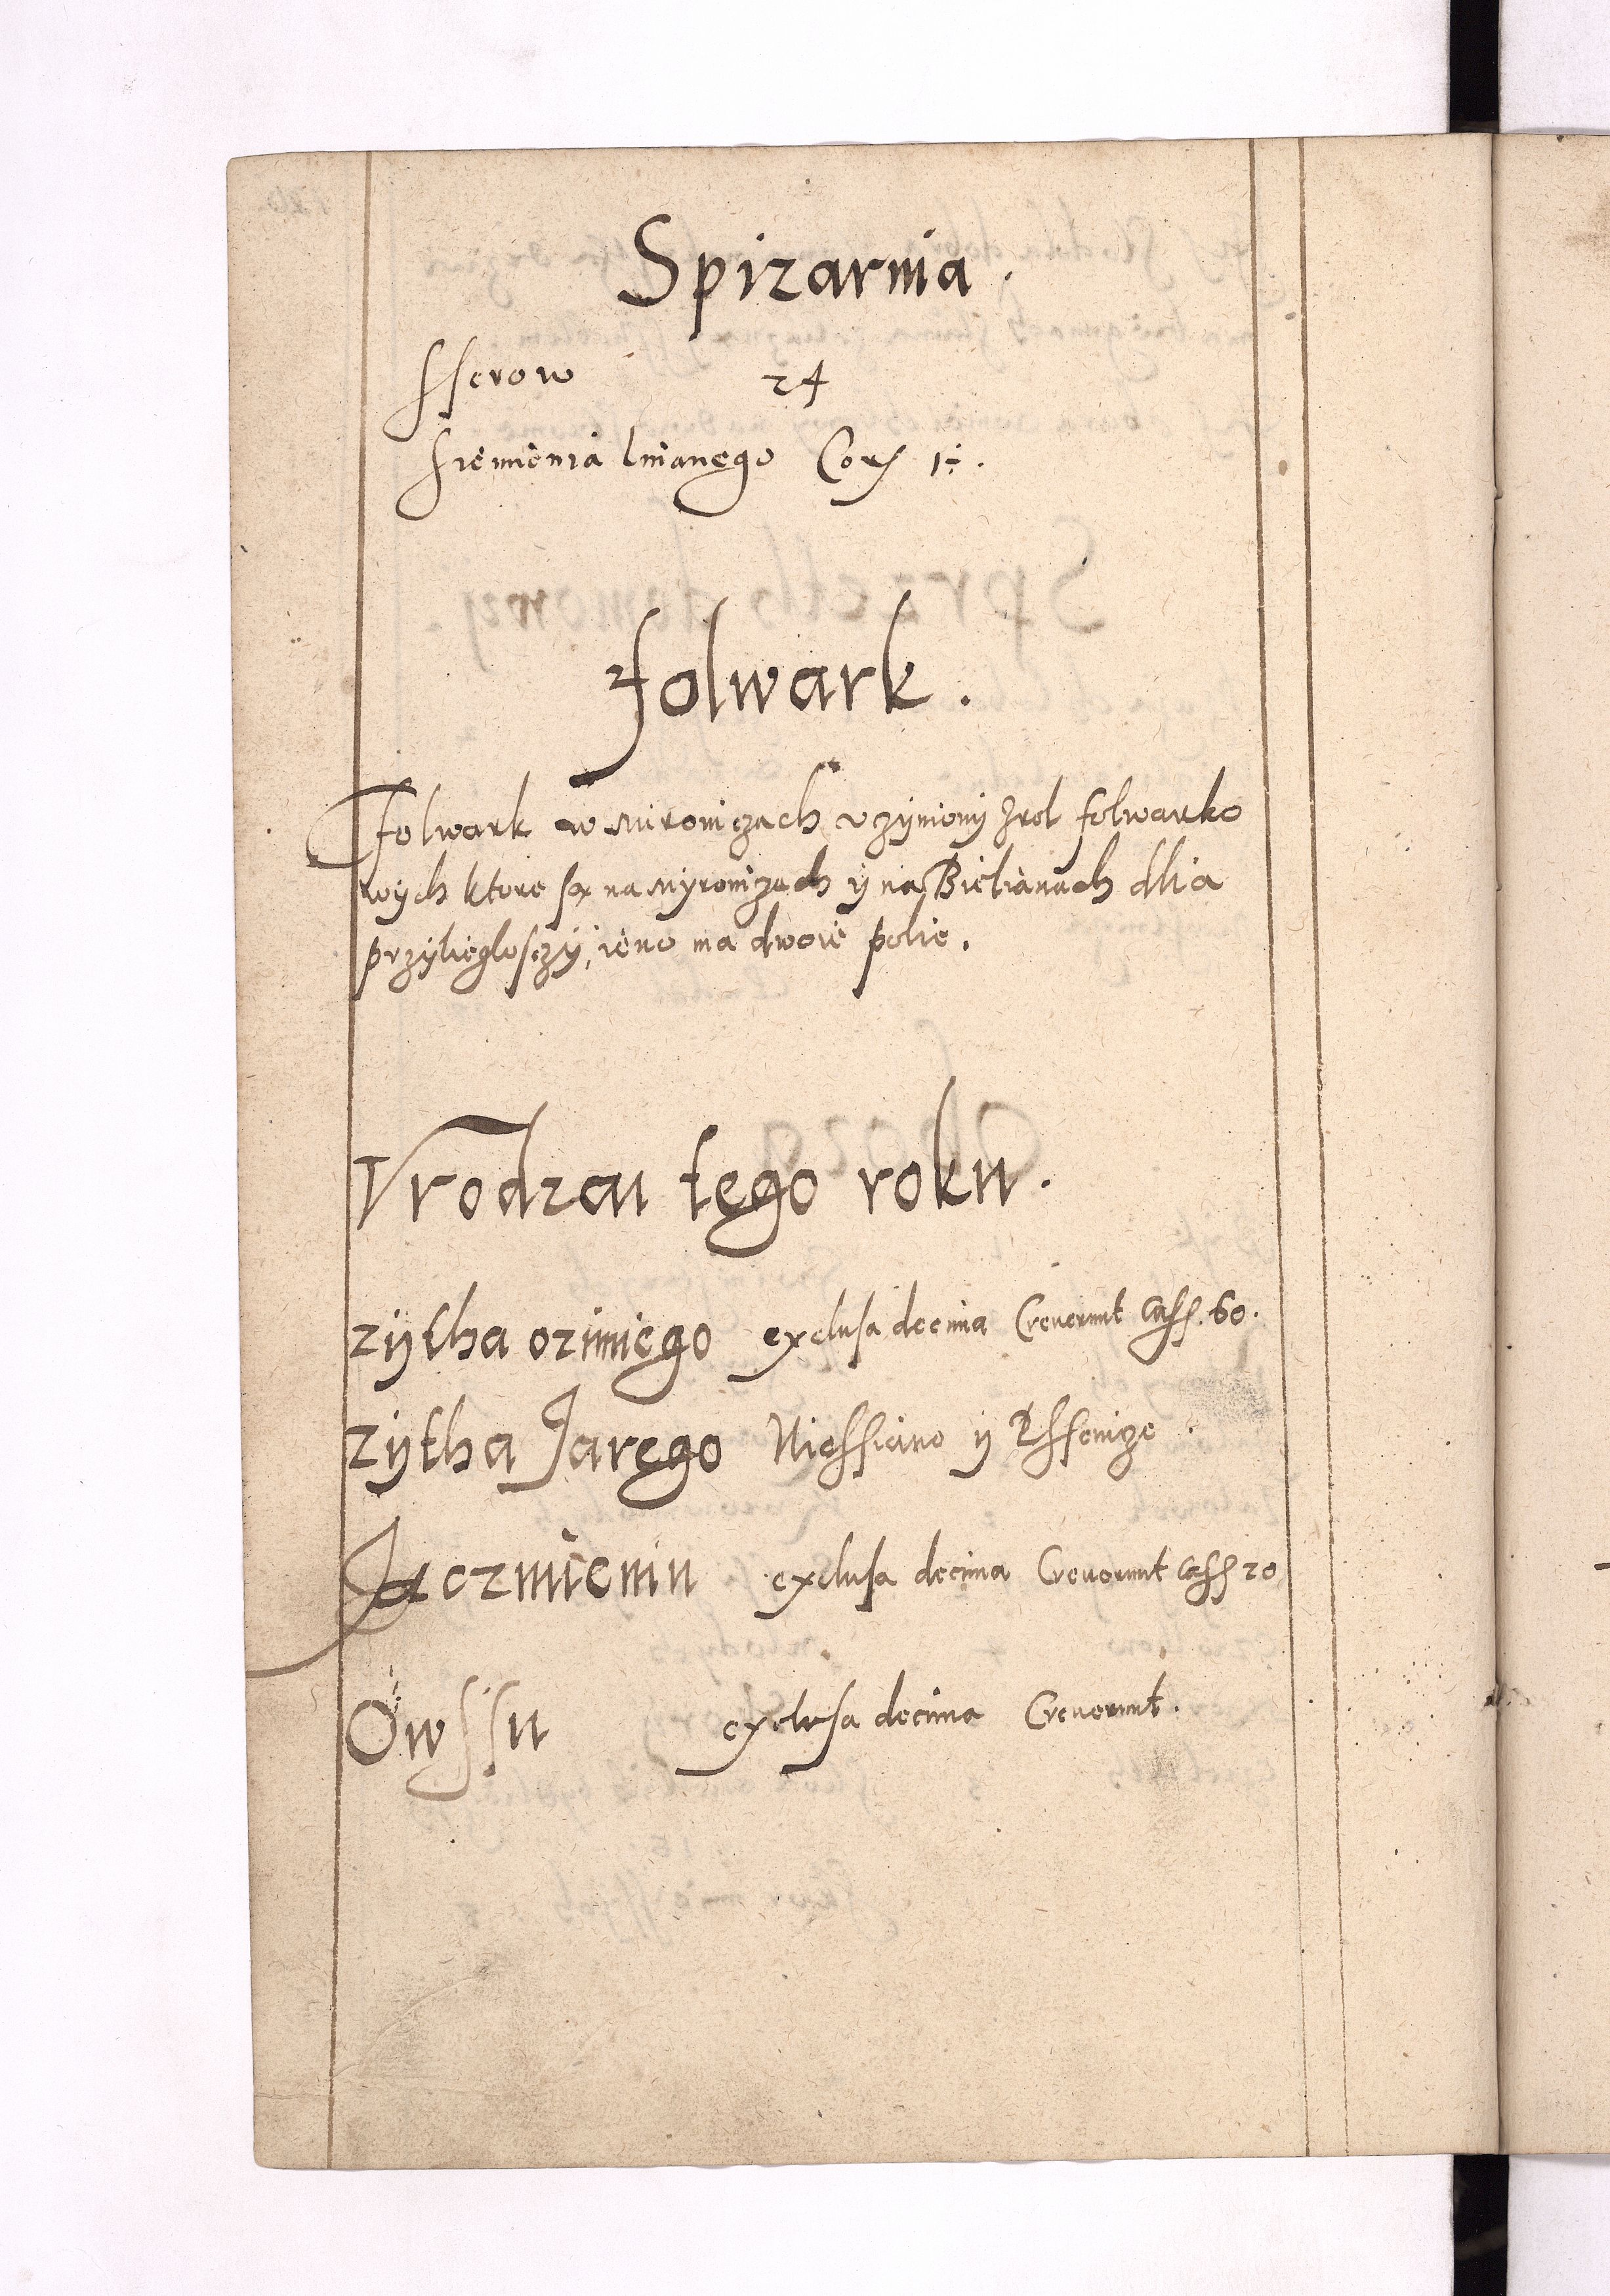 Spizarnia.
Sserow 24
Siemienia lnianego Cor 1÷.
Folwark.
Folwark w Mironiczach vczyniony zrol folwarko
wych ktore są na Myroniczach ÿ na Bielianach dlia
przyliegłosczÿ, ieno ma dwoie polie.
Vrodzai tego roku.
zÿtha ozimiego exclusa decima Creuerunt Cass. 60.
zÿtha Jarego Niessieino ÿ Pssenicze
Jęczmieniu exclusa decima Creuerunt Cass 20
Owssu exclusa decima Creuerunt.